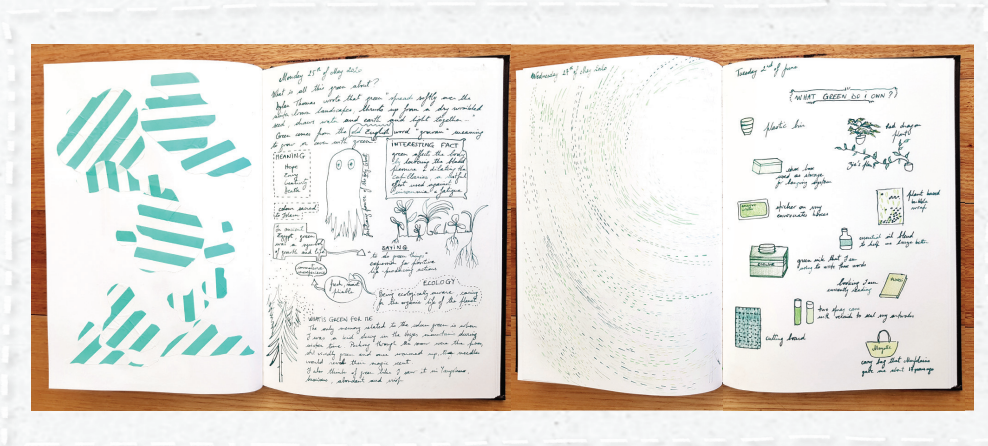 Monday 25th of May 2020
What is all this green about?
Dylan Thomas wrote that green "spreads softly over the
brown landscapes thrusts up from a dry wrinkled
seed, draws water and earth and light together..."
Green comes from the old English word "growan" meaning
to grow in love with green
MEANING
Hope
Envy
Creativity
Death
colour sacred
to Islam
In ancient
Egypt, green
was a symbol
of growth and life
INTERESTING FACT
green affect the body
by lowering the blood
pressure & dilating the
capillaries, a helpful
effect used against
insomnia & fatigue
SAYING
"to do green things"
expression for positive
life-producing actions
fresh and
pliable
ECOLOGY
Being ecologically aware - caring
for the organic life of the planet
WHAT IS GREEN FOR ME
The only memory related to the colour green is when
I was a kid living in the mountain during
winter time. Passing through the snow were the firs,
dark green and once warmed up, the needles
would their magic scent.
I also think of green like I saw it in Tanzania,
luscious, abundant and crisp
Wednesday 27th of May 2020
Tuesday 2nd of June
WHAT GREEN DO I OWN?
plastic bin
Red dragon
plant
shoe box
used as storage
for system
plant based
bubble
wrap
sticker on my
boxes
essential oil blend
to help me better
green ink that I am
using to write these words
book I am
currently reading
two glues
with to seal my
cutting board
carry bag that
gave me about 18 years ago